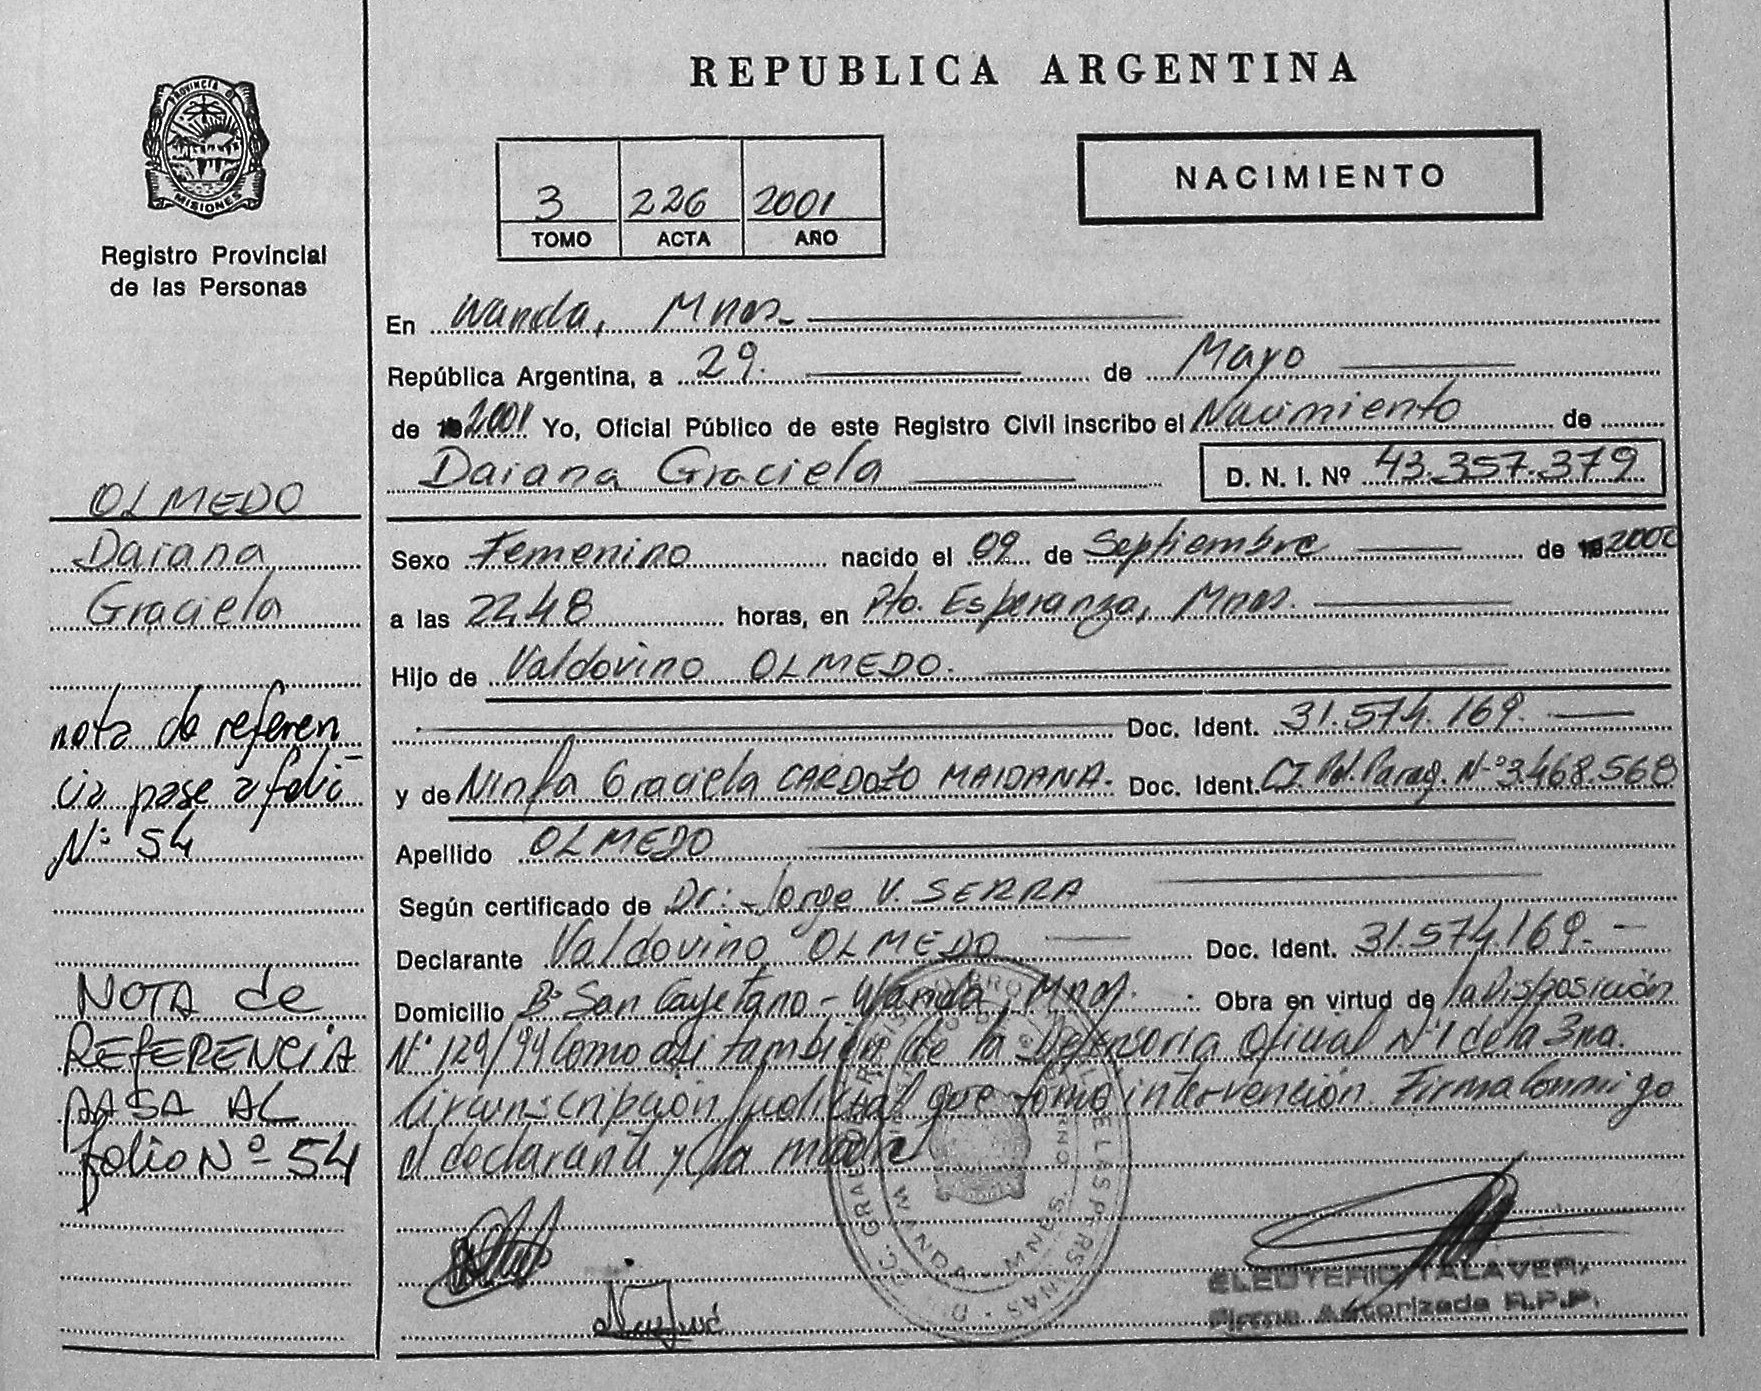 REPUBLICA ARGENTINA
PROVINCIA D
MISIONES
Registro Provincial
de las Personas
3 226 2001
TOMO ACTA AÑO
NACIMIENTO
En Wanda, Mnes.
República Argentina, a 29. de Mayo
de 2001 Yo, Oficial Público de este Registro Civil inscribo el Nacimiento de
Daiana Graciela D. N. I. Nº 43.357.379
OLMEDO
Daiana
Graciela
nota de referen
cia pase a folio
Nº 54
NOTA de
REFERENCIA
PASA AL
folio Nº 54
Sexo Femenino nacido el 09 de Septiembre de 2000
a las 22,48 horas, en Pto. Esperanza, Mnes.
Hijo de Valdovino OLMEDO.
Doc. Ident. 31.574.169.
y de Ninfa Graciela CARDOZO MAIDANA. Doc. Ident. CI. Pol. Parag. Nº 3.468.568
Apellido OLMEDO
Según certificado de Dr: Jorge V. SERRA
Declarante Valdovino OLMEDO Doc. Ident. 31.574.169.
Domicilio Bº San Cayetano - Wanda, Mnes. Obra en virtud de la Disposición
Nº 129/94 Como asi tambien de la Defensoria Oficial Nº 1 de la 3ra.
Circunscripción Judicial que tomo intervención. Firma Conmigo
el declarante y la madre
WANDA
ELEUTERIO TALAVER
Firma Autorizada R.P.P.